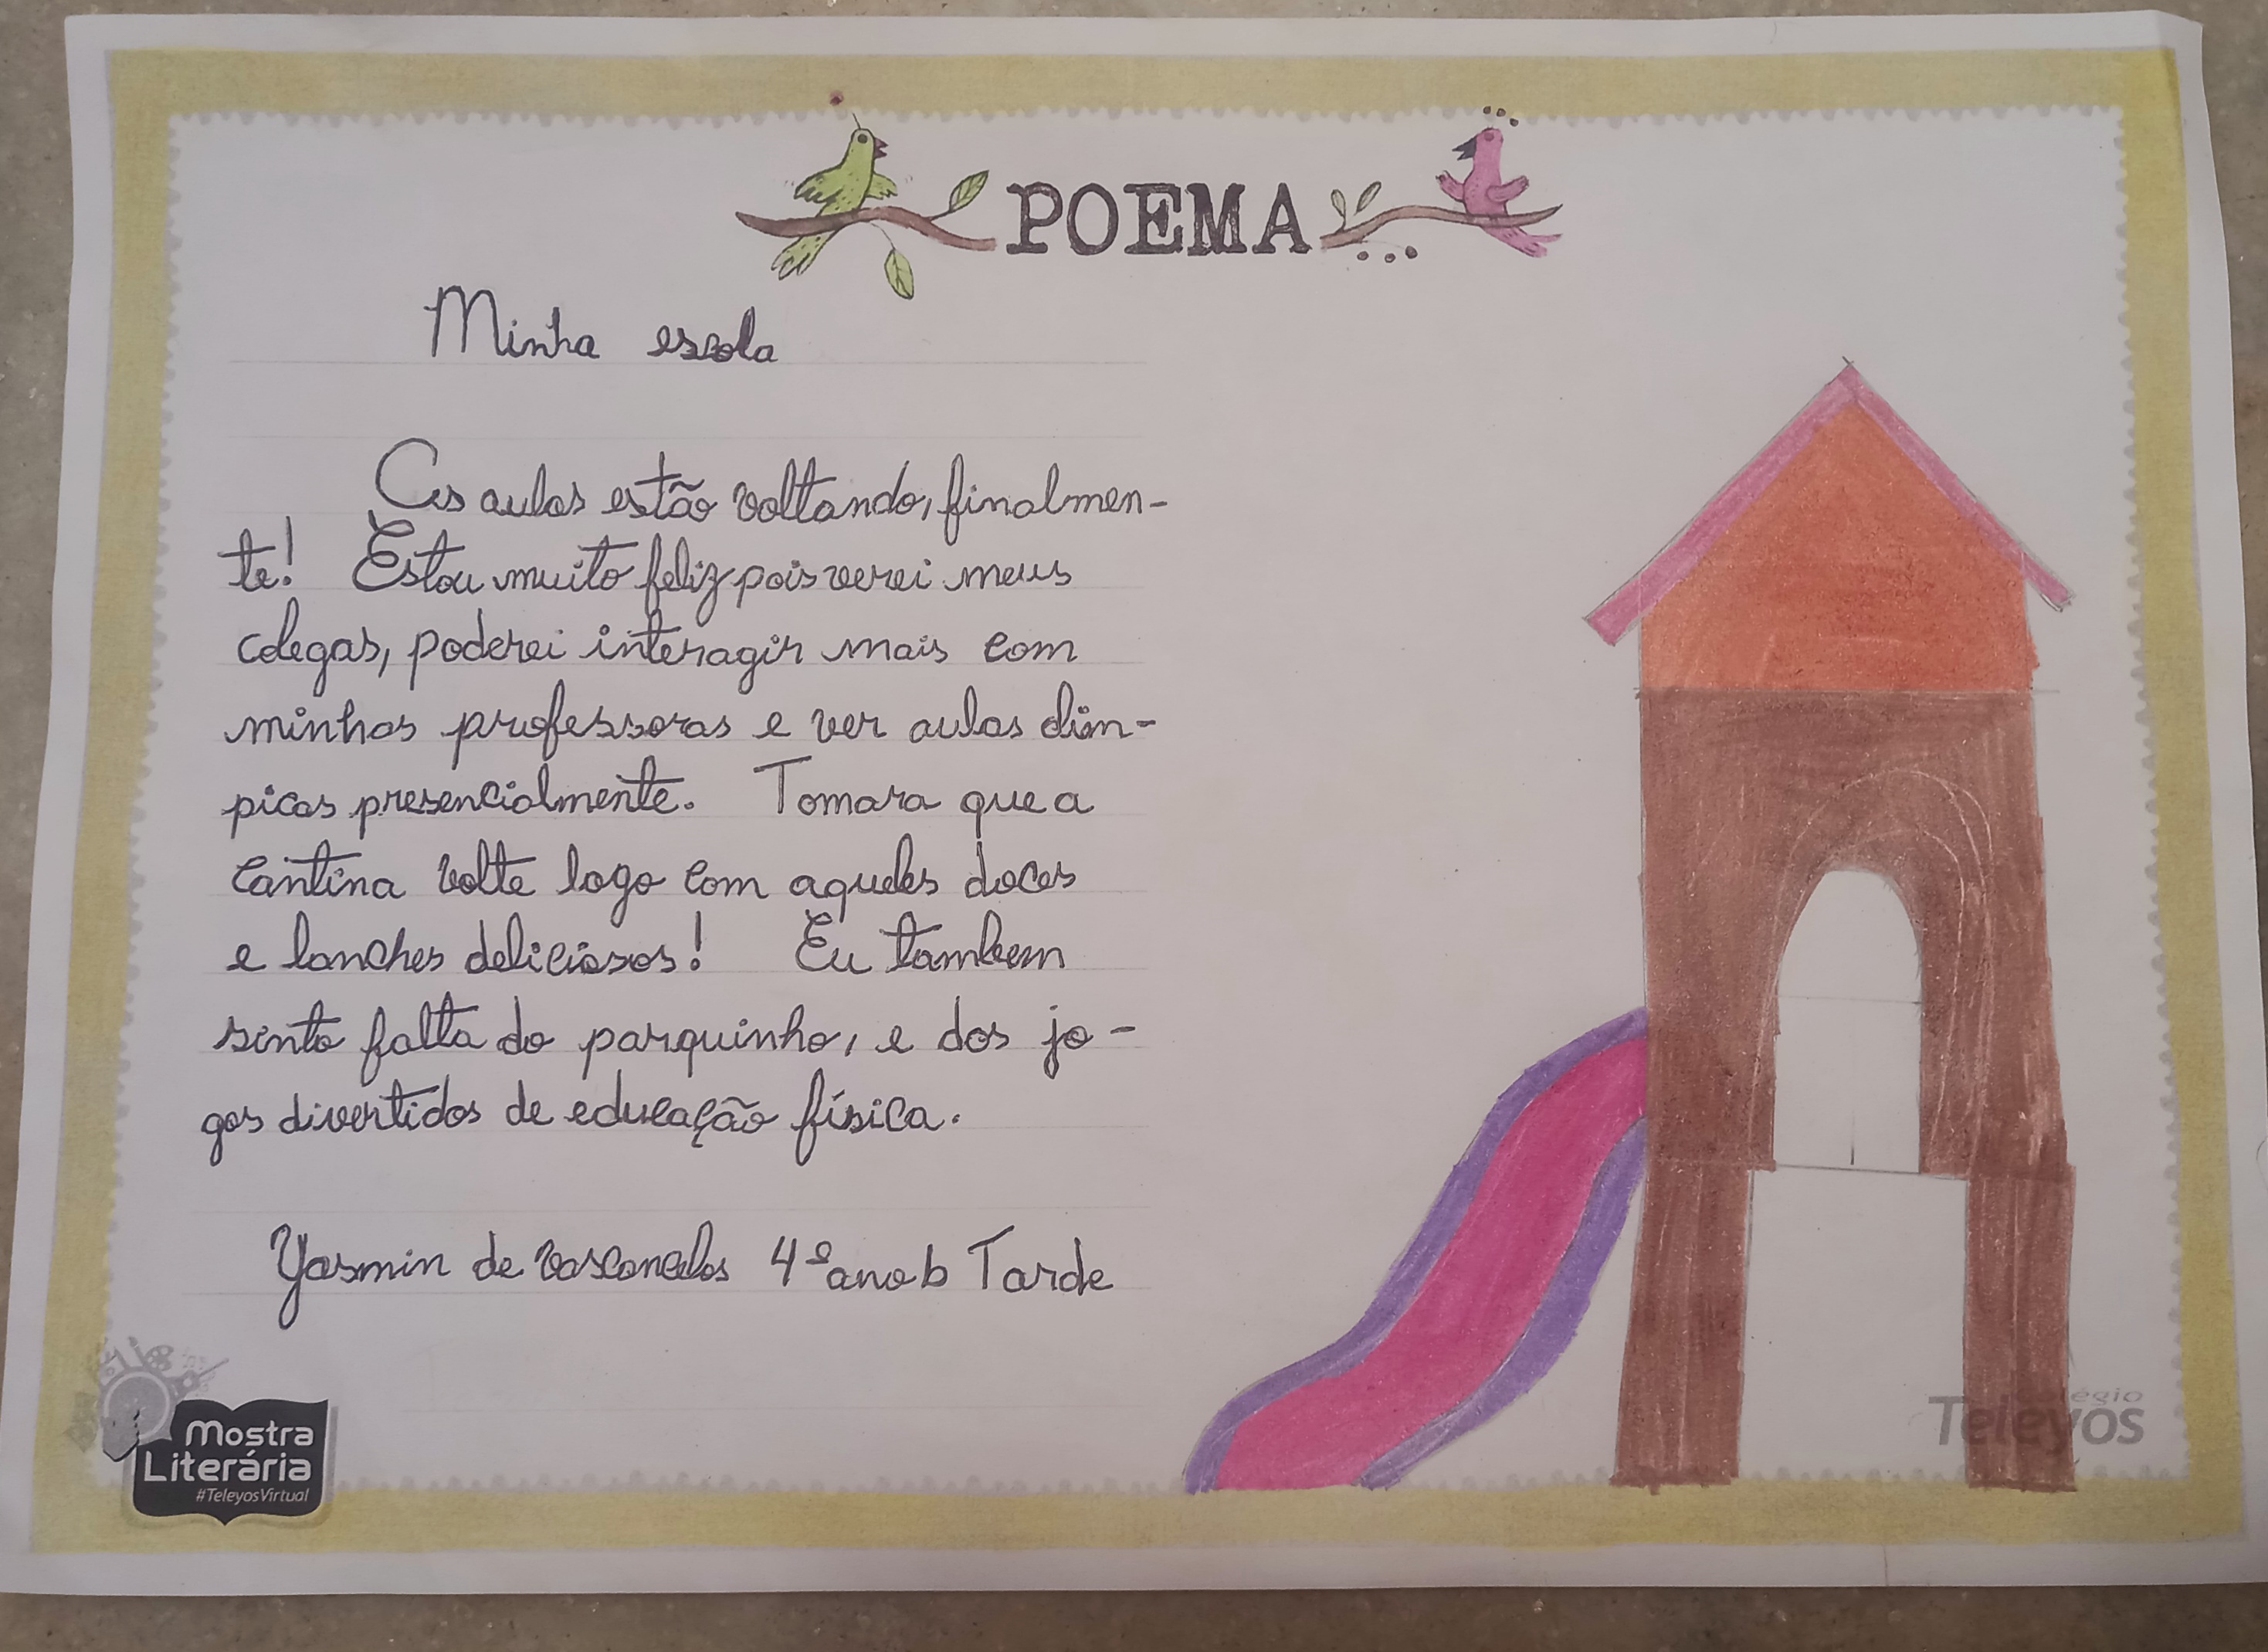 POEMA
Minha escola
As aulas estão voltando, finalmen-
te! Estou muito feliz pois verei meus
colegas, poderei interagir mais com
minhas professoras e ver aulas olím-
picas presencialmente. Tomara que a
cantina volte logo com aqueles doces
e lanches deliciosos! Eu tambem
sinto falta do parquinho, e dos jo-
gos divertidos de educação física.
Yasmin de Vasconcelos 4º ano b Tarde
Mostra
Literária
#TeleyosVirtual
Teleyos